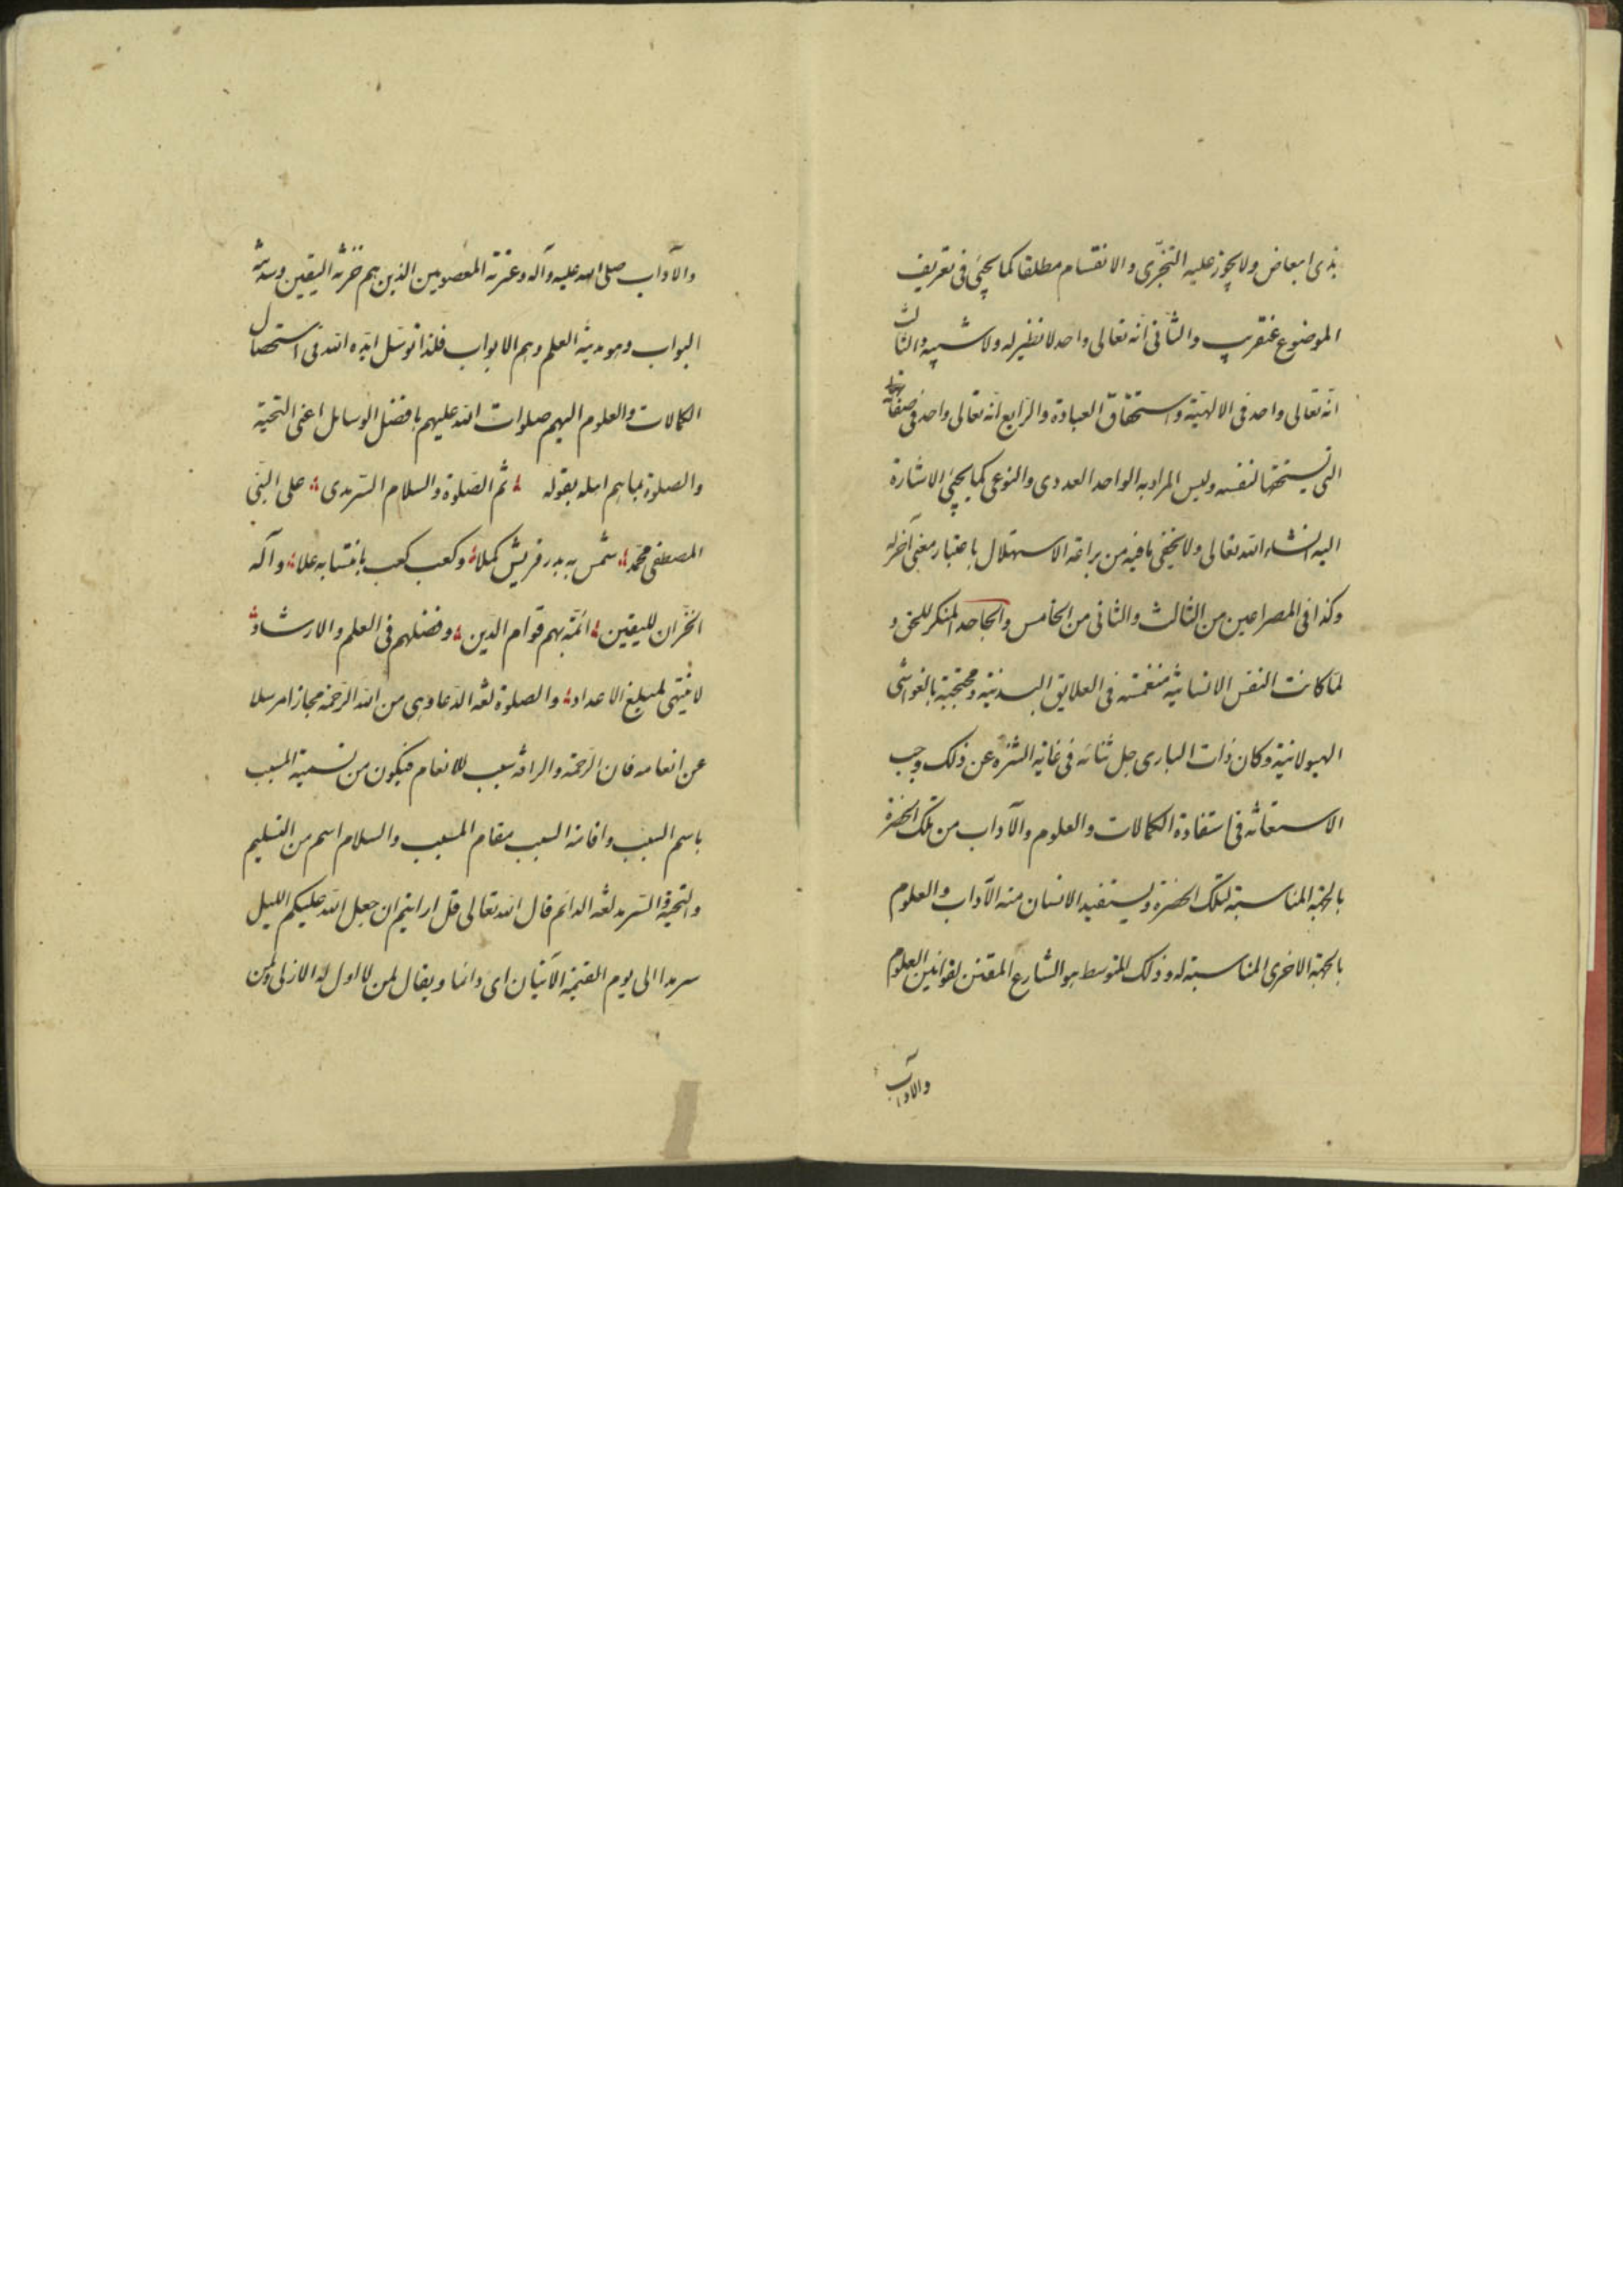 بذى ابعاض ولا يجوز عليه التجزّى والانقسام مطلقا كما يجئ فى تعريف
الموضوع عنقريب والثانى انّه تعالى واحد لا نظير له ولا شبيه والثالث
انّه تعالى واحد فى الالهيّة واستحقاق العبادة والرّابع انّه تعالى واحد فى صفاته
التى يستحقها لنفسه وليس المراد به الواحد العددى والنوعى كما يجئ الاشارة
اليه انشاء الله تعالى ولا يخفى ما فيه من براعة الاستهلال باعتبار معنى آخر له
وكذا فى المصراعين من الثالث والثانى من الخامس والجاحد المنكر للحق و
لمّا كانت النفس الانسانية منغمسة فى العلايق البدنيّة ومحتجبة بالغواشى
الهيولانيّة وكان ذات البارى جل ثنائه فى غاية التنزه عن ذلك وجب
الاستعانة فى استفادة الكمالات والعلوم والآداب من تلك الحضرة
بالجهة المناسبة لتلك الحضرة ويستفيد الانسان منه الآداب والعلوم
بالجهة الاخرى المناسبة له وذلك المتوسط هو الشارع المقنن لقوانين العلوم
والآداب
والآداب صلى الله عليه وآله وعترته المعصومين الذين هم خزنة اليقين وسدنة
البواب وهو مدينة العلم وهم الابواب فلذا توسّل ايّده الله فى استحصال
الكمالات والعلوم اليهم صلوات الله عليهم بافضل الوسايل اعنى التحيّة
والصلوة بما هم اهله بقوله ثم الصّلوة والسلام السّرمدى على النبّى
المصطفى محمّد شمس به بدر قريش كملا وكعب كعب بانتسابه علا وآله
الخزّان لليقين ائمّة بهم قوام الدّين وفضلهم فى العلم والارشاد
لا ينتهى لمبلغ الاعداد والصلوة لغة الدّعاء وهى من الله الرّحمة مجازا مرسلا
عن انعامه فان الرّحمة والرافة سبب للانعام فيكون من تسمية المسبب
باسم السبب واقامة السبب مقام المسبب والسلام اسم من التسليم
والتحية والسّرمد لغة الدائم قال الله تعالى قل ارايتم ان جعل الله عليكم الليل
سرمدا الى يوم القيمة الآيتان اى دائما ويقال لمن لا اول له الازلى ولمن